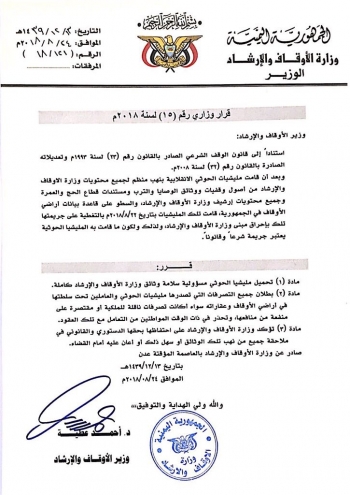 بسم الله الرحمن الرحيم
الجمهورية اليمنية
وزارة الأوقاف والإرشاد
الوزير
التاريخ: ١٤٣٩/١٢/١٣هـ
الموافق: ٢٠١٨/٨/٢٤م
الرقم: (١٨/١٢١)
المرفقات:
قرار وزاري رقم (١٥) لسنة ٢٠١٨م
وزير الأوقاف والإرشاد:
استناداً إلى قانون الوقف الشرعي الصادر بالقانون رقم (٢٣) لسنة ١٩٩٣م وتعديلاته
الصادرة بالقانون رقم (٣٢) لسنة ٢٠٠٨م.
وبعد أن قامت مليشيات الحوثي الانقلابية بنهب منظم لجميع محتويات وزارة الأوقاف
والإرشاد من أصول وقفيات ووثائق الوصايا والترب ومستندات قطاع الحج والعمرة
وجميع محتويات إرشيف وزارة الأوقاف والإرشاد، والسطو على قاعدة بيانات أراضي
الأوقاف في الجمهورية، قامت تلك المليشيات بتاريخ ٢٠١٨/٨/٢٢م بالتغطية على جريمتها
تلك بإحراق مبنى وزارة الأوقاف والإرشاد، ولذلك ولكون ما قامت به المليشيا الحوثية
يعتبر جريمة شرعاً وقانوناً.
قـــرر:
مادة (١) تحميل مليشيا الحوثي مسؤولية سلامة وثائق وزارة الأوقاف والإرشاد كاملة.
مادة (٢) بطلان جميع التصرفات التي تصدرها مليشيات الحوثي والعاملين تحت سلطتها
في أراضي الأوقاف وعقاراته سواء أكانت تصرفات ناقلة للملكية أو مقتصرة على
منفعة من منافعها، وتحذير في ذات الوقت المواطنين من التعامل مع تلك العقود.
مادة (٣) تؤكد وزارة الأوقاف والإرشاد على احتفاظها بحقها الدستوري والقانوني في
ملاحقة جميع من نهب تلك الوثائق أو سهل ذلك أو أعان عليه امام القضاء.
صادر عن وزارة الأوقاف والإرشاد بالعاصمة المؤقتة عدن
بتاريخ ١٤٣٩/١٢/١٣هـ
الموافق ٢٠١٨/٠٨/٢٤م
والله ولي الهداية والتوفيق،،،
د. أحمد عطية
وزير الأوقاف والإرشاد
الجمهورية اليمنية
وزارة
الأوقاف والإرشاد